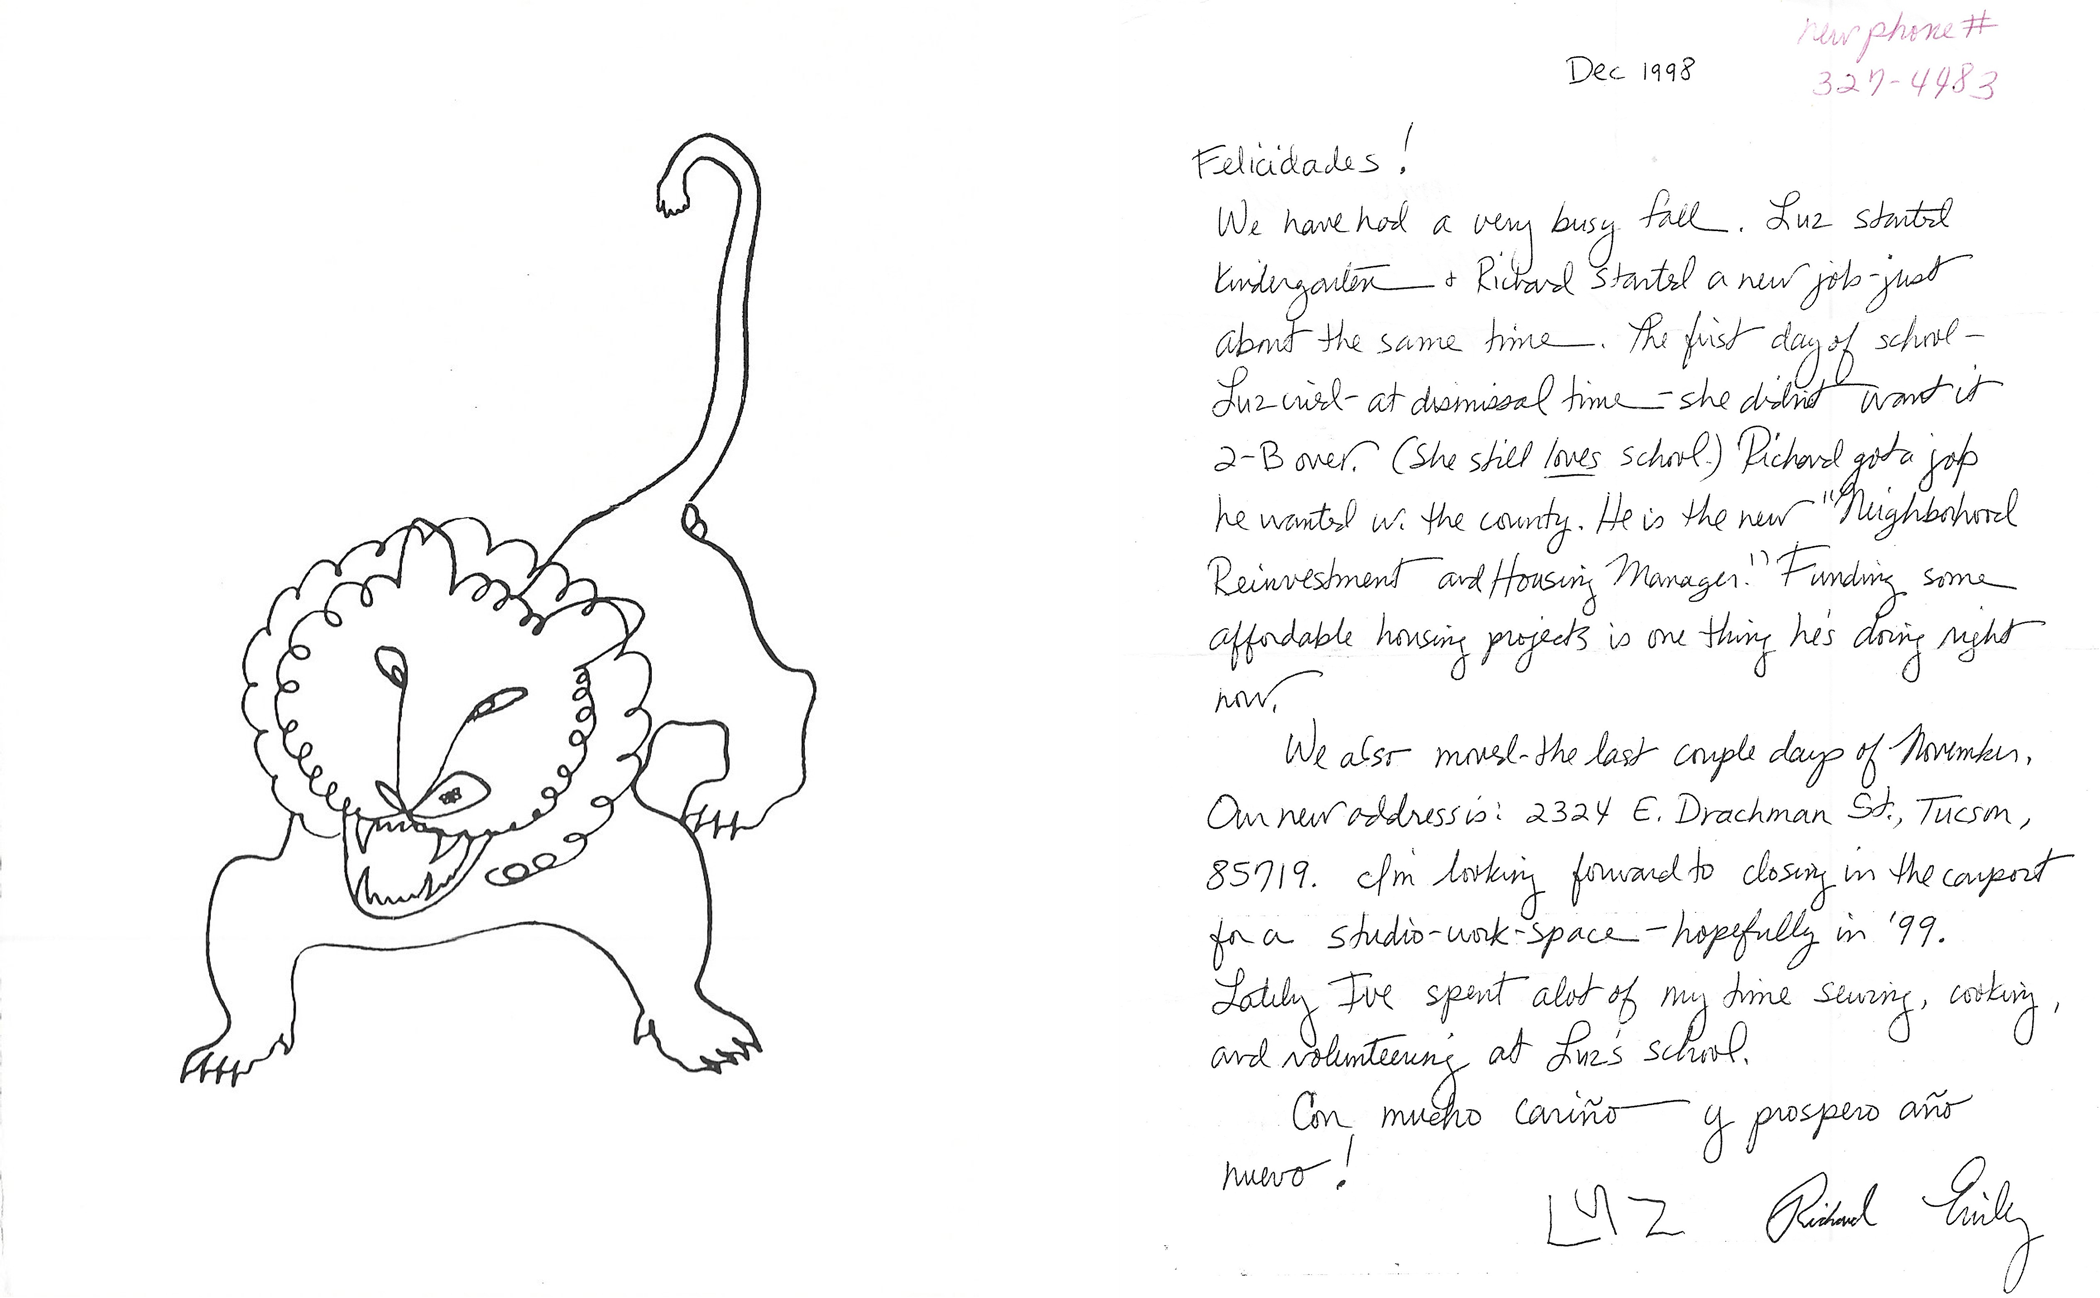 new phone #
327-4483
Dec 1998
Felicidades!
We have had a very busy fall. Luz started
Kindergarten + Richard started a new job - just
about the same time. The first day of school -
Luz cried - at dismissal time - she didn't want it
2-B over. (She still loves school.) Richard got a job
he wanted w. the county. He is the new "Neighborhood
Reinvestment and Housing Manager." Funding some
affordable housing projects is one thing he's doing right
now.
We also moved - the last couple days of November.
Our new address is: 2324 E. Drachman St., Tucson,
85719. I'm looking forward to closing in the carport
for a studio-work-space - hopefully in '99.
Lately I've spent alot of my time sewing, cooking,
and volunteering at Luz's school.
Con mucho cariño y prospero año
nuevo!
LUZ Richard Emily